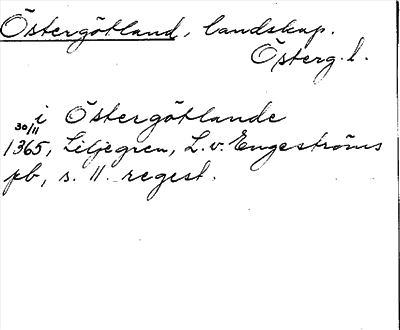 Östergötland, landskap.
Österg. l.
i Östergötlande
30/11
1365, Liljegren, L. v. Engeströms
pb, s. 11. regest.